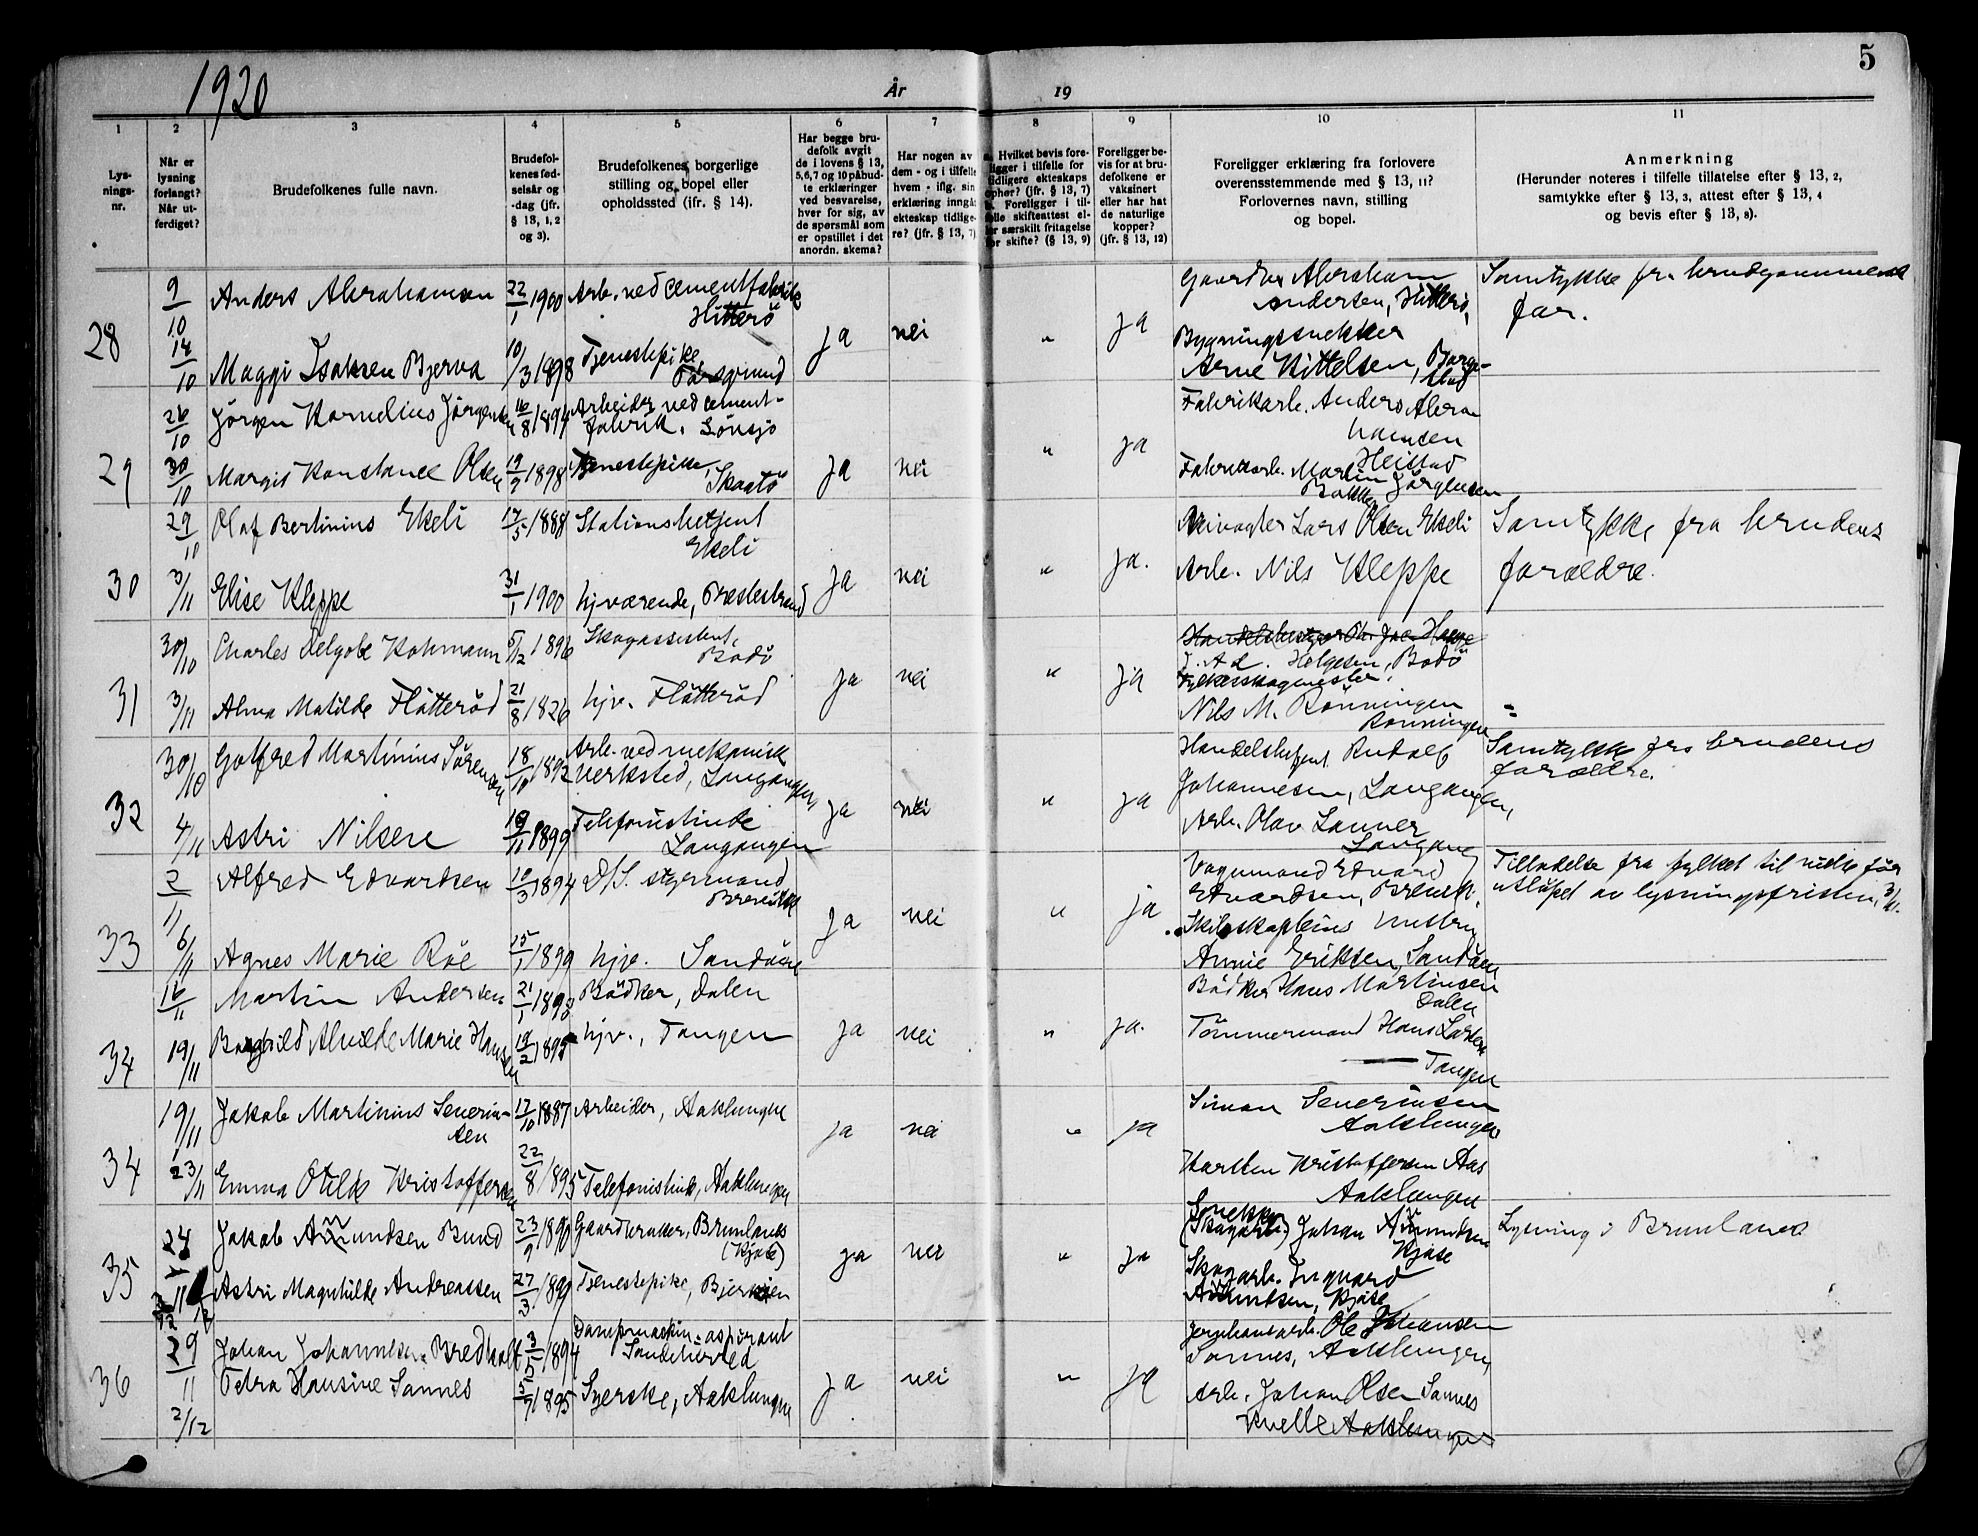 1920
År
19
5
1
2
3
4
5
6
7
8
9
10
11
Lys-
nings-
nr.
Når er
lysning
forlangt?
Når ut-
ferdiget?
Brudefolkenes fulle navn.
Brudefol-
kenes fød-
selsår og
-dag (jfr.
§ 13, 1, 2
og 3).
Brudefolkenes borgerlige
stilling og bopel eller
opholdssted (ifr. § 14).
Har begge bru-
defolk avgit
de i lovens § 13,
5, 6, 7 og 10 påbud-
te erklæringer
ved besvarelse,
hver for sig, av
de spørsmål som
er opstillet i det
anordn. skema?
Har nogen av
dem - og i tilfelle
hvem - iflg. sin
erklæring inngått
ekteskap tidlige-
re? (jfr. § 13, 7)
Hvilket bevis fore-
ligger i tilfelle for
tidligere ekteskaps
opher? (jfr. § 13, 7)
Foreligger i til-
felle skifteattest el-
ler særskilt fritagelse
for skifte? (§ 13, 9)
Foreligger be-
vis for at bru-
defolkene er
vaksinert
eller har hat
de naturlige
kopper?
(jfr. § 13, 12)
Foreligger erklæring fra forlovere
overensstemmende med § 13, 11?
Forlovernes navn, stilling
og bopel.
Anmerkning
(Herunder noteres i tilfelle tillatelse efter § 13, 2,
samtykke efter § 13, 3, attest efter § 13, 4
og bevis efter § 13, 8).
28
9/10
14/10
Anders Abrahamsen
22/1 1900
Arb. ved cementfabrik
Hitterö
Maggi Isaksen Bjerva
10/3 1898
Tjenestepike
Porsgrund
ja
nei
"
ja
Gaardbr Abraham
Andersen, Hitterö,
Bygningssnekker
Arne Kittelsen,
Samtykke fra brudgommens
far.
29
26/10
30/10
Jørgen Kornelius Jörgensen
16/8 1894
Arbeider ved cement-
fabrik.
Margit Konstance Olsen
19/9 1898
Tjenestepike,
Skaatö
ja
nei
"
ja
Fabrikarb. Anders Abra
hamsen
Heistad
Fabrikarb. Martin Jörgensen
30
29/10
3/11
Olaf Bertinius Ekeli
17/5 1888
Stationsbetjent
Ekeli
Elise Kleppe
31/1 1900
hjværende, Prestestrand
ja
nei
"
ja.
Lars Olsen Ekeli
Arb. Nils Kleppe
Samtykke fra brudens
forældre.
31
30/10
3/11
Charles Delgobe Kohmann
5/12 1896
Skogassistent,
Bodö
Alma Matilde Flåtteröd
21/8 1826
hjv. Flåtteröd
ja
nei
"
ja
J. Ad. Helgesen, Bodö
fylkesskogmester.
Nils M. Rönningen
Rönningen
32
30/10
4/11
Gotfred Martinius Sörensen
18/10 1892
Arb. ved mekanisk
verksted, Langangen,
Astri Nilsen
/11 1899
Telefonistinde
Langangen
ja
nei
"
ja
Handelsbetjent Rudolf
Johannesen, Langangen,
Arb. Olav Lanner
Langang
Samtykke fra brudens
forældre.
33
2/11
6/11
Alfred Edvardsen
10/3 1894
D/S. styrmand
Brevik
Agnes Marie Röe
15/1 1899
hjv. Sandöen
ja
nei
"
ja
Vognmand Edvard
Edvardsen, Brevik.
Skibskapteins hustru
Annie Eriksen, Sandöen
Tilladelse fra fylket til vielse för
utlöpet av lysningsfristen, 3/11.
34
16/11
19/11
Martin Andersen
Bödker, Dalen
Borghild Alvilde Marie Hansen
19/2 1895
hjv., Tangen
ja
nei
"
ja.
Bödker Hans Martinsen
Dalen
Tömmermand Hans Larsen
Tangen
34
19/11
23/11
Jakob Martinius Severin-
sen
17/10 1887
Arbeider, Aaklungen
Emma Otilie Kristoffersen
22/8 1895
Telefonistinde, Aaklungen
ja
nei
"
ja
Simon Severinsen
Aaklungen
Karsten Kristoffersen Aas
Aaklungen
35
24/11
Jakob Amundsen Bund
23/9 1890
Gaardbruker, Brunlanes
(Kjose)
Astri Magnhilde Andreassen
27/3 1899
Tjenestepike,
ja
nei
"
ja
Snekker
(Skogarb.) Johan Amundsen
Kjose
Skogarb. Ingvard
Amundsen, Kjose
Lysning i Brunlanes
36
29/11
2/12
Johan Johannesen Bredholt
1894
Dampmaskin-aspirant
Sandeherred
Petra Hansine Sannes
5/9 1895
Syerske, Aaklungen
ja
nei
"
ja
Jernbanearb. Ole Johansen
Sannes, Aaklungen,
Arb. Johan Olsen Sannes
Kvelle Aaklungen